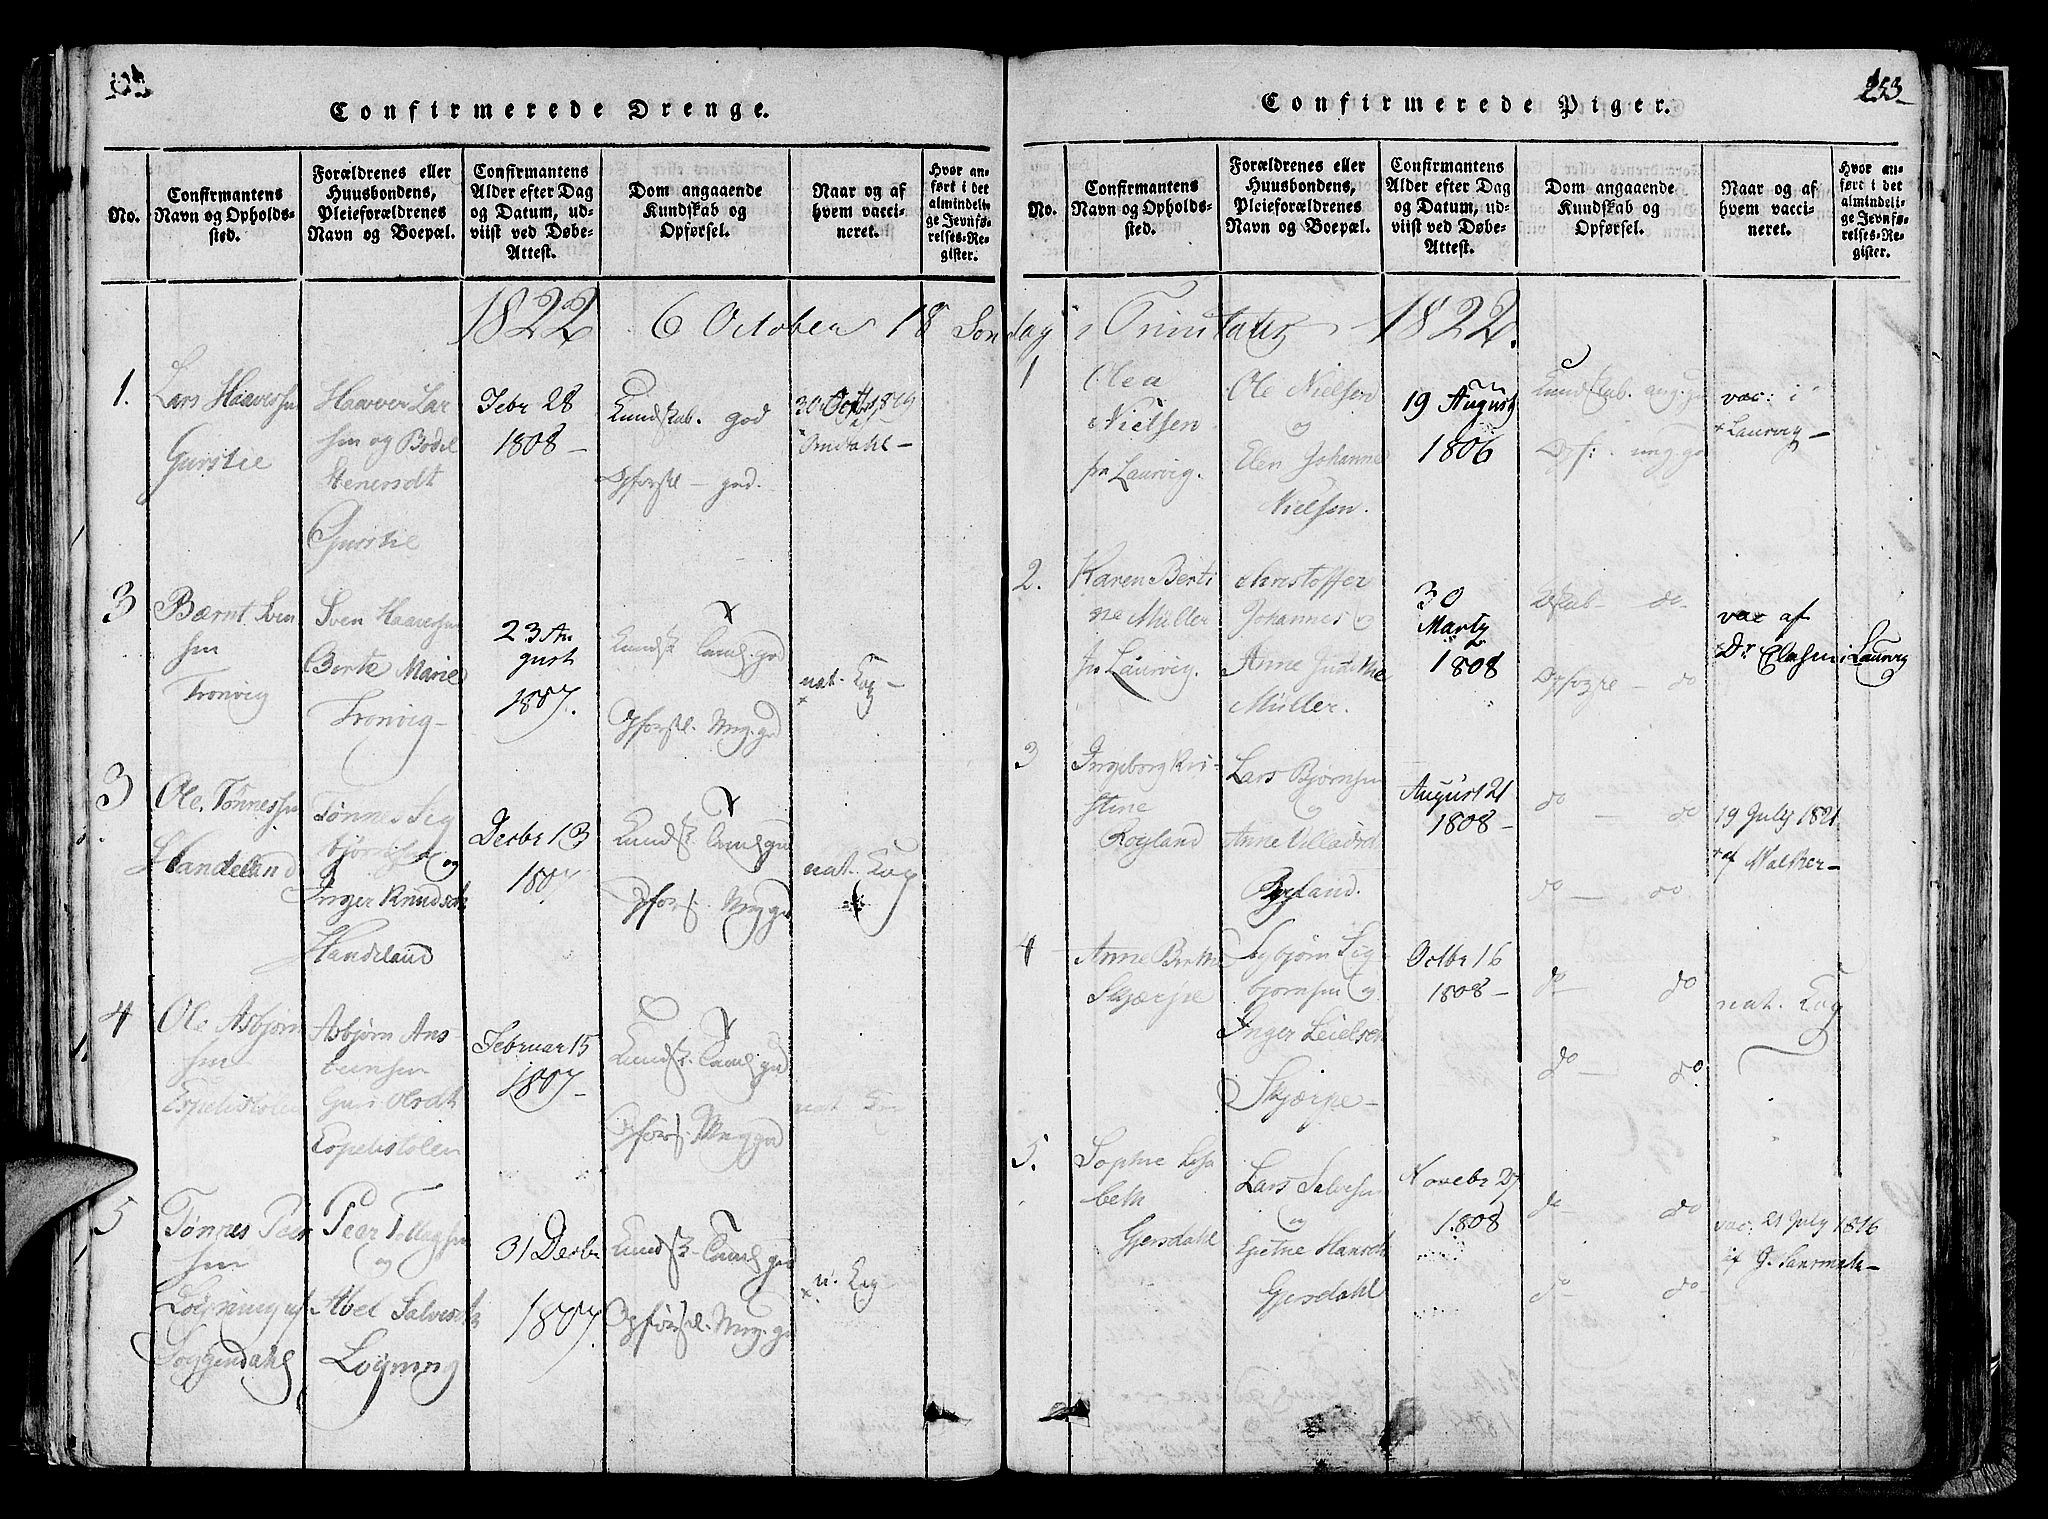 Confirmerede Drenge.
No.
Confirmantens
Navn og Opholds-
sted.
Forældrenes eller
Huusbondens,
Pleieforældrenes
Navn og Boepæl.
Confirmantens
Alder efter Dag
og Datum, ud-
viist ved Døbe-
Attest.
Dom angaaende
Kundskab og
Opførsel.
Naar og af
hvem vacci-
neret.
Hvor an-
ført i det
almindeli-
ge Jevnfø-
relses-Re-
gister.
1822 6 October 18 Son
1.
Lars Haaversen
Gurstie
Haaver Lar
sen og Bodel
Stenersdt
Gurstie
Febr 28
1808 -
Kundskab. god
Opforsel - god.
3
Bærnt Sven
sen
Tronvig
Sven Haaversen
Berte Marie
Tronvig -
23 Au
gust
1807.
Kundsk. Taml. god
Opforsel. Meg. god
nat. Kop -
3
Ole Tönnessen
Handeland
Tønnes Sig
bjørnsen og
Inger Knudsdt
Handeland
Decbr 13
1807
Kundsk. Taml. god
Opførs. Meg god
nat. Kop
4
Ole Asbjørn
sen
Espelistølen
Asbjørn Ans
teensen
Guri Olsdt
Espelistølen
Februar 15
1807 -
Kundsk. Taml god
Opførs. Meg god
nat
5
Tønnes Peer
sen
Løyning
Soggendahl
Peer Tollagsen
og
Abel Salvesdt
Løyning
31 Decbr
1807.
Kundsk. Taml god
Opførsel. Meg. god
n. Kop
Confirmerede Piger.
253
No.
Confirmantens
Navn og Opholds-
sted.
Forældrenes eller
Huusbondens,
Pleieforældrenes
Navn og Boepæl.
Confirmantens
Alder efter Dag
og Datum, ud-
viist ved Døbe-
Attest.
Dom angaaende
Kundskab og
Opførsel.
Naar og af
hvem vacci-
neret.
Hvor an-
ført i det
almindeli-
ge Jevnfø-
relses-Re-
gister.
dag Trinitatis 1822.
1
Olea
Nielsen
fra Laurvig.
Ole Nielsen
og
Elen Johanne
Nielsen.
19 August
1806
Kundskab. meg. god
Opf: meg. god
vac: i
Laurvig -
2.
Karen Berti
ne Müller
fra Laurvig.
Christoffer
Johannes og
Anne Judithe
Müller.
30
Marty
1808
do
do
vac af
Dr i Laurvig
3
Ingeborg Kri-
stine
Rogland
Lars Bjørnsen
og
Anne Villadsdt
Rogland.
August 21
1808 -
do - do
do - do
19 July 1821
af Walker -
4
Anne Berthe
Skjærpe
Asbjørn Sig
bjørnsen og
Inger Leielsdt
Skjærpe -
Octbr 16
1808 -
do - do
do - do
nat. Kop
5.
Sophie Lisa
beth
Gjersdahl
Lars Salvesen
og
Gjersdahl
Novebr 27
1808
do - do
do - do
vac. 21 July 1816